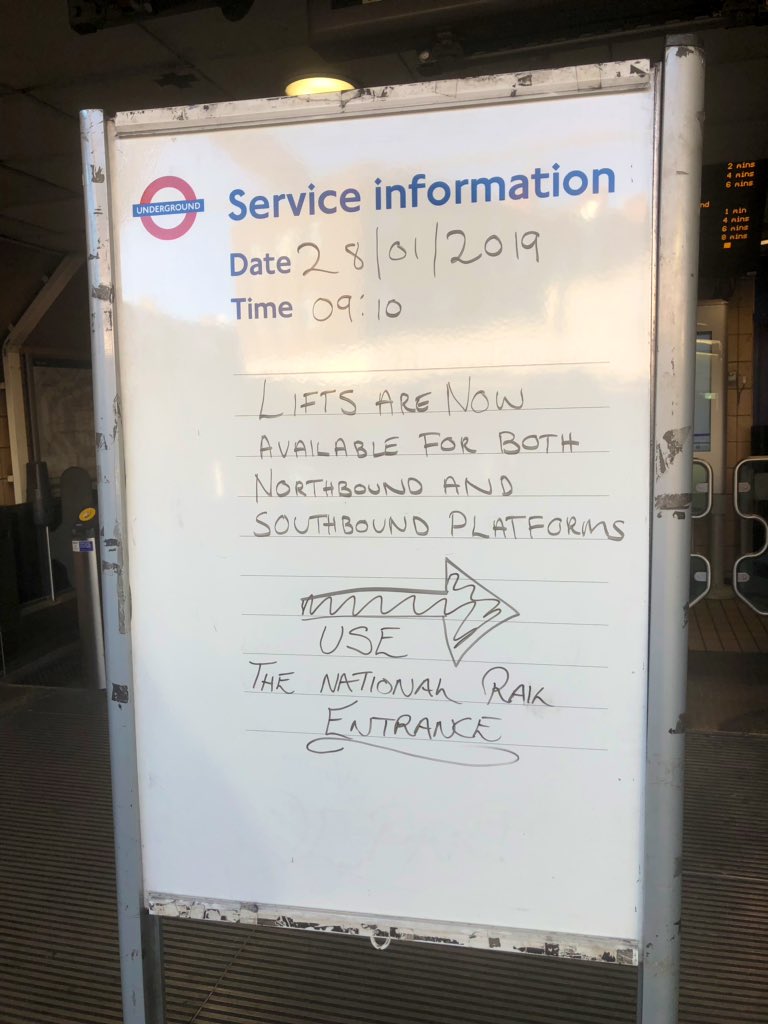 UNDERGROUND
Service information
Date 28/01/2019
Time 09:10
LIFTS ARE NOW
AVAILABLE FOR BOTH
NORTHBOUND AND
SOUTHBOUND PLATFORMS
USE
THE NATIONAL RAIL
ENTRANCE
2 mins
4 mins
6 mins
1 min
4 mins
6 mins
8 mins